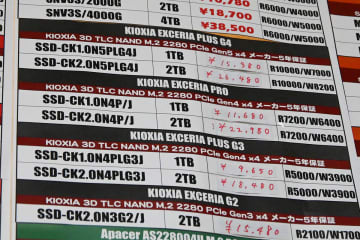 SNV3S/2000G 2TB ¥10,780 R6000/W5000
SNV3S/4000G 2TB ¥18,700 R6000/W5000
4TB ¥38,500 R6000/W5000
KIOXIA EXCERIA PLUS G4
KIOXIA 3D TLC NAND M.2 2280 PCIe Gen5 x4 メーカー5年保証
SSD-CK1.0N5PLG4J 1TB ¥15,580 R10000/W7900
SSD-CK2.0N5PLG4J 2TB ¥26,480 R10000/W8200
KIOXIA EXCERIA PRO
KIOXIA 3D TLC NAND M.2 2280 PCIe Gen4 x4 メーカー5年保証
SSD-CK1.0N4P/J 1TB ¥11,680 R7200/W6400
SSD-CK2.0N4P/J 2TB ¥22,980 R7200/W6400
KIOXIA EXCERIA PLUS G3
KIOXIA 3D TLC NAND M.2 2280 PCIe Gen4 x4 メーカー5年保証
SSD-CK1.0N4PLG3J 1TB ¥9,650 R5000/W3900
SSD-CK2.0N4PLG3J 2TB ¥18,480 R5000/W3900
KIOXIA EXCERIA G2
KIOXIA 3D TLC NAND M.2 2280 PCIe Gen3 x4 メーカー5年保証
SSD-CK2.0N3G2/J 2TB ¥15,480 R2100/W1700
Apacer